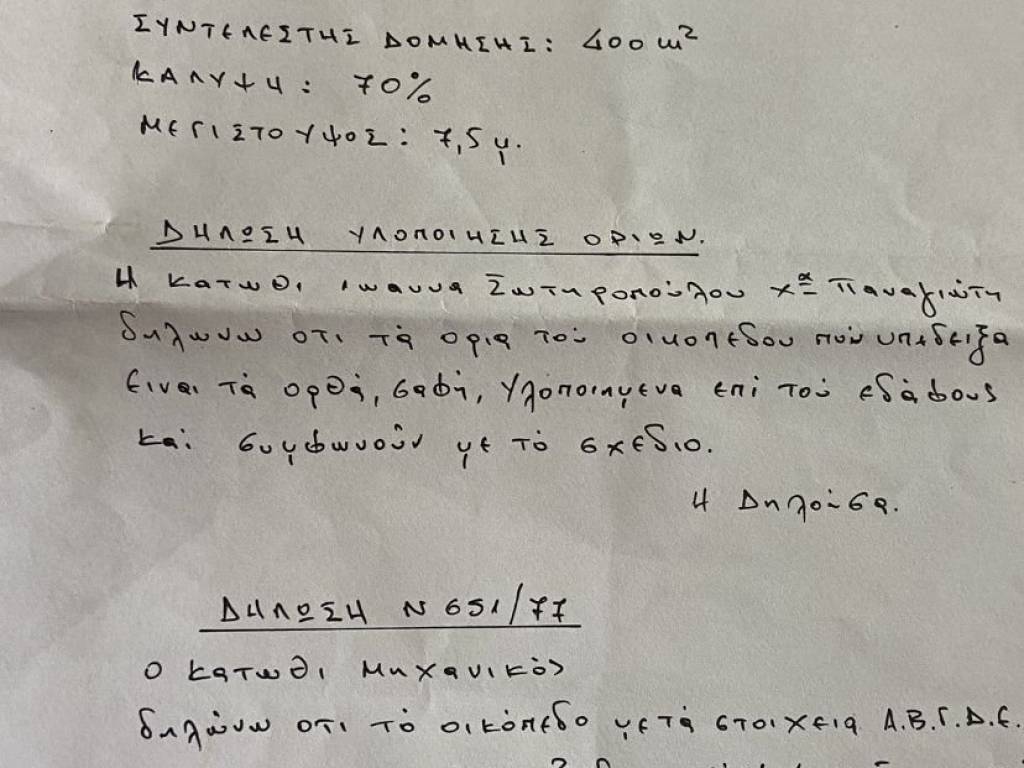 ΣΥΝΤΕΛΕΣΤΗΣ ΔΟΜΗΣΗΣ: 400 m²
ΚΑΛΥΨΗ: 70%
ΜΕΓΙΣΤΟ ΥΨΟΣ: 7,5 μ.
ΔΗΛΩΣΗ ΥΛΟΠΟΙΗΣΗΣ ΟΡΙΩΝ.
Η κατωθι ιωαννα Σωτηροπούλου χα Παναγιώτη
δηλωνω οτι τά ορια τού οικοπεδου πού υπεδειξα
ειναι τά ορθά, σαφή, Υλόποιημενα επί τού εδάφους
καί συμφωνούν με τό σχεδιο.
Η Δηλούσα.
ΔΗΛΩΣΗ Ν 651/77
Ο κατωθι Μηχανικός
δηλώνω οτι τό οικόπεδο μετά στοιχεια Α.Β.Γ.Δ.Ε.